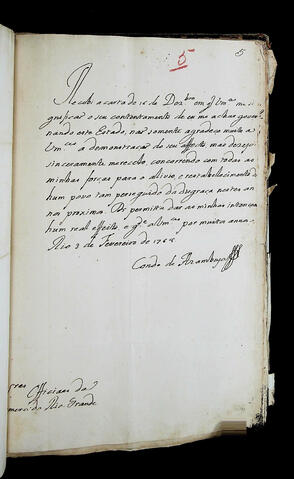 5
5
Recebi a carta de 16 de Dez.bro em q̃ Vm.ces me si
gnificaõ o seu contentamento de eu me achar gover
nando este Estado, naõ somente agradeço muito a
Vm.ces a demonstraçaõ do seu affecto, mas dezejo
sinceramente merecelo concorrendo com todas as
minhas forças para o alivio, e restabelecimento de
hum povo tam perseguido da desgraça nestes an
nos proximos. Ds permitta dar as minhas intençoens
hum real effeito e g.de a Vm.ces por muitos annos.
Rio 3 de Fevereiro de 1768
Conde de Azambuja
Officiaes da
do Rio Grande